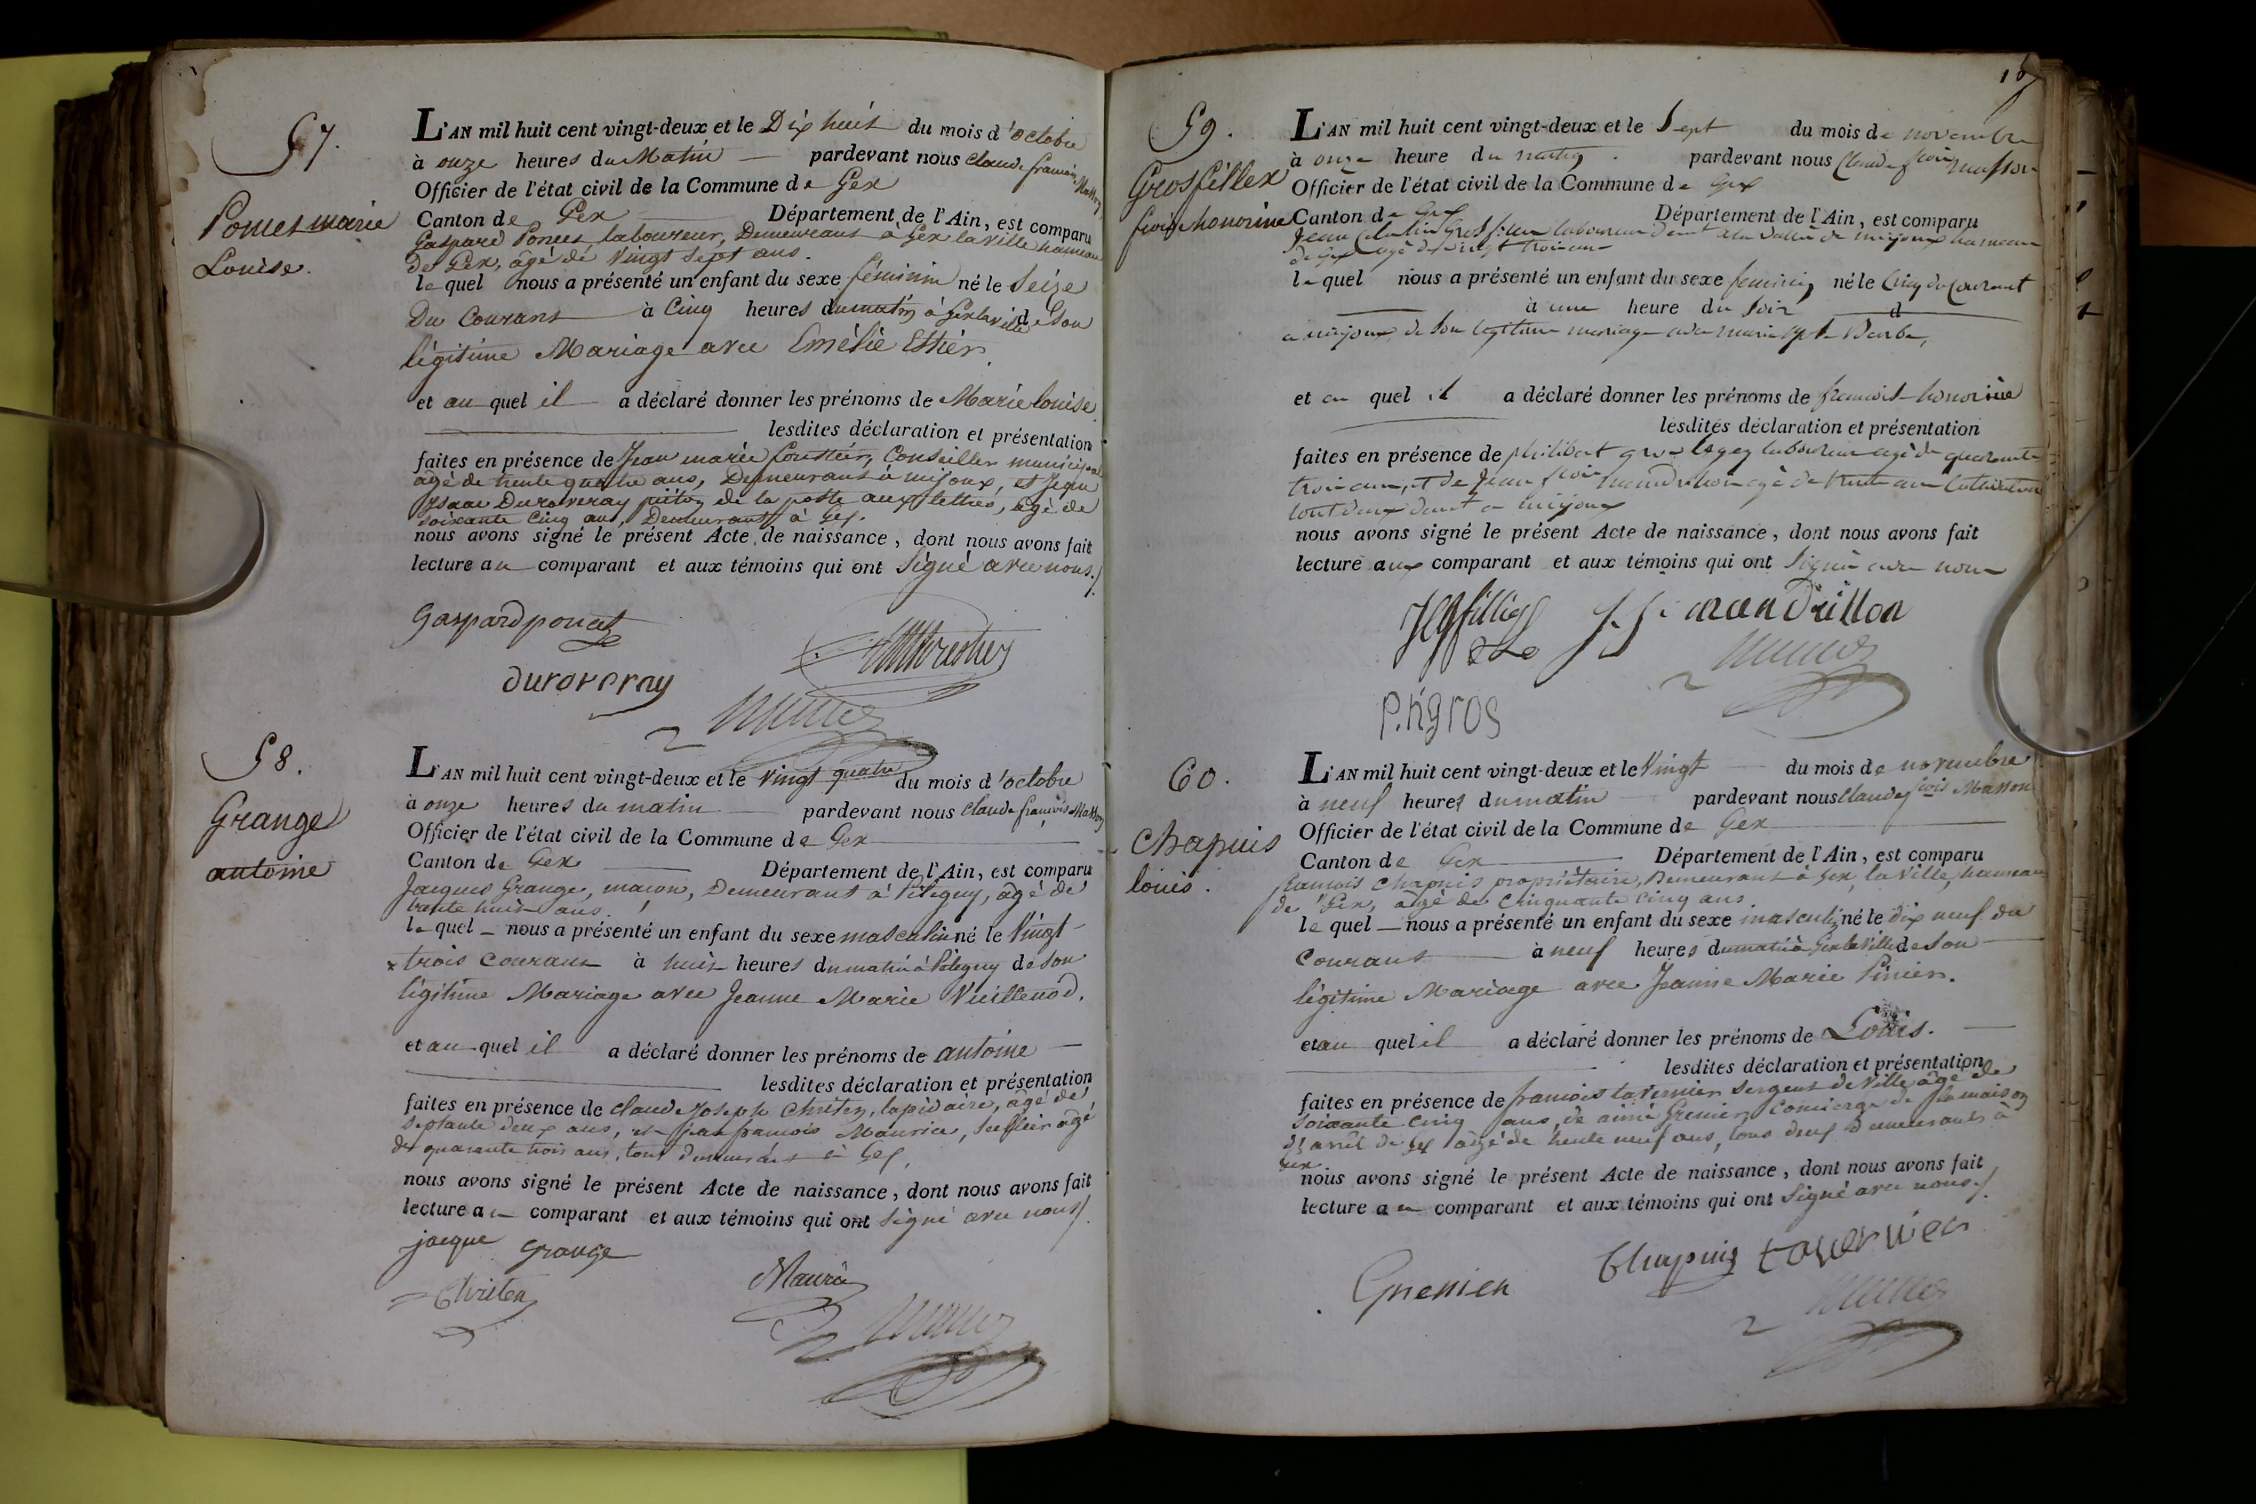 57.
Poncet marie
Louise.
L'AN mil huit cent vingt-deux et le Dix huit du mois d'octobre
à onze heures du Matin pardevant nous Claude françois Masson
Officier de l'état civil de la Commune de Gex
Canton de Gex Département de l'Ain, est comparu
Gaspard Poncet laboureur, Demeurant à Gex la ville hameau
de Gex, âgé de vingt sept ans.
le quel nous a présenté un enfant du sexe féminin né le Seize
Du Courant à Cinq heures du matin à Gex la ville de Son
légitime Mariage avec Emélie Estier.
et au quel il a déclaré donner les prénoms de Marie louise
lesdites déclaration et présentation
faites en présence de Jean marie Conseiller municipal
âgé de trente quatre ans, Demeurant à mijoux, et Jean
Isaac Duroveray piéton de la poste aux lettres, âgé de
soixante Cinq ans, Demeurant à Gex.
nous avons signé le présent Acte de naissance, dont nous avons fait
lecture au comparant et aux témoins qui ont Signé avec nous./.
Gaspard poncet
duroveray
58.
Grange
antoine
L'AN mil huit cent vingt-deux et le Vingt quatre du mois d'octobre
à onze heures du matin pardevant nous Claude françois Masson
Officier de l'état civil de la Commune de Gex
Canton de Gex Département de l'Ain, est comparu
Jacques Grange, maçon, Demeurant à Pitegny, âgé de
trente huit ans.
le quel nous a présenté un enfant du sexe masculin né le Vingt
trois Courant à huit heures du matin à Pitegny de Son
légitime Mariage avec Jeanne Marie Vuillenod.
et au quel il a déclaré donner les prénoms de antoine
lesdites déclaration et présentation
faites en présence de Claude Joseph Christen, lapidaire, âgé de
septante deux ans, et jean françois Maurice, âgé
de quarante trois ans, tous demeurant à Gex.
nous avons signé le présent Acte de naissance, dont nous avons fait
lecture au comparant et aux témoins qui ont Signé avec nous./.
jacque Grange
Christen
Maurice
59.
Grosfillex
fçoise honorine
L'AN mil huit cent vingt-deux et le Sept du mois de novembre
à onze heure du matin pardevant nous Claude fcois masson
Officier de l'état civil de la Commune de Gex
Canton de Gex Département de l'Ain, est comparu
Jean laboureur demt à la vallée de mijoux hameau
de Gex agé de vingt trois ans
le quel nous a présenté un enfant du sexe feminin né le Cinq du Courant
à une heure du Soir d
a mijoux de Son légitime mariage avec marie
et au quel il a déclaré donner les prénoms de francoise honorine
lesdites déclaration et présentation
faites en présence de philibert laboureur agé de quarante
trois ans, et de Jean fcois mandrillon agé de trente ans Cultivateur
tout deux demt a mijoux
nous avons signé le présent Acte de naissance, dont nous avons fait
lecture aux comparant et aux témoins qui ont Signé avec nous
J. f. mandrillon
P. h gros
60.
Chapuis
louis.
L'AN mil huit cent vingt-deux et le Vingt du mois de novembre
à neuf heures du matin pardevant nous Claude fcois Masson
Officier de l'état civil de la Commune de Gex
Canton de Gex Département de l'Ain, est comparu
françois Chapuis propriétaire, Demeurant à Gex, la ville, hameau
de Gex, âgé de Cinquante Cinq ans
le quel nous a présenté un enfant du sexe masculin né le dix neuf du
Courant à neuf heures du matin à Gex la Ville de Son
légitime Mariage avec Jeanne Marie Pinier.
et au quel il a déclaré donner les prénoms de Louis.
lesdites déclaration et présentation
faites en présence de françois tavernier Sergent de Ville âgé de
Soixante Cinq ans, de aimé Grenier Concierge de la maison
d'arrêt de Gex âgé de trente neuf ans, tous deux demeurants à
Gex
nous avons signé le présent Acte de naissance, dont nous avons fait
lecture au comparant et aux témoins qui ont Signé avec nous./.
Grenier
Chapuis
tavernier